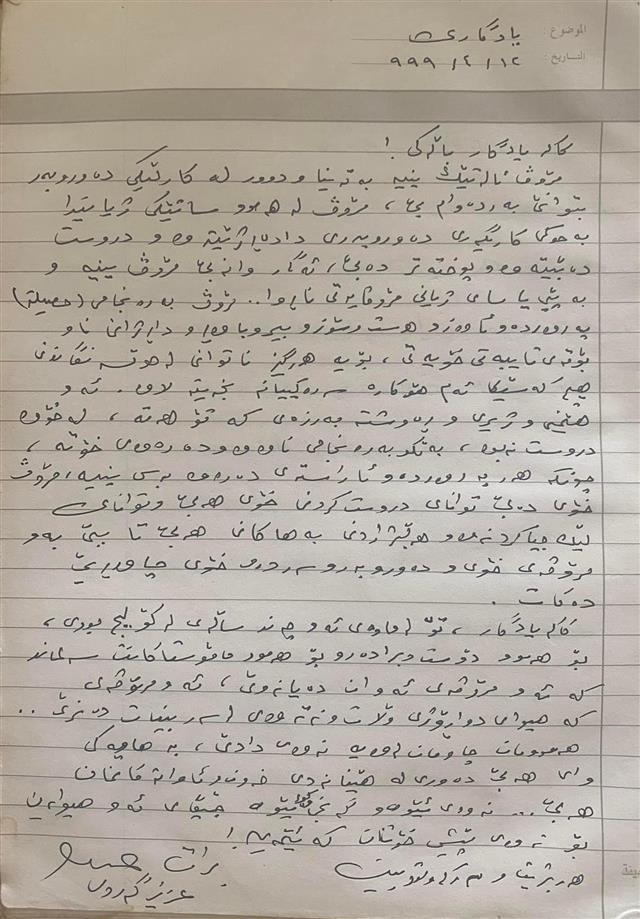 الموضوع : یادگاری
التاریخ : ١٢ / ٤ / ٩٩٩
کاکە یادگار باڵەکی !
مرۆڤ ئالەتێک نییە بە تەنیا و دوور لە کارتێکی دەوروبەر
بتوانێ بەردەوام بێ ، مرۆڤ لە هەموو ساتێکی ژیانیدا
بە حوکمی کاریگەری دەوروبەری دادەڕێژێتەوە و دروست
دەبێتەوە و پوختەتر دەبێ، ئەگەر وانەبێ مرۆڤ نییە و
بە پێی یاسای ژیانی مرۆڤایەتی نابێ.. مرۆڤ بەرەنجامی (حصیلة)
پەروەردە و ئاوەز و هەست و سۆز و بیروباوەڕ و داڕژانی ناو
بۆتەی تایبەتی خۆیەتی ، بۆیە هەرگیز ناتوانی لەهەڵسەنگاندنی
هیچ کەسێکا ئەم هۆکارە سەرەکییانە بخەیتە لاوە . ئەو
هێمنی و ژیری و ڕەوشتە بەرزەی کە تۆ هەتە ، لەخۆوە
دروست نەبوە ، بەڵکو بەرەنجامی ناوەوە و دەرەوەی خۆتە ،
چونکە هەر پەروەردە و ئاراستەی دەرەوە بەس نییە، مرۆڤ
خۆی دەبێ توانای دروستکردنی خۆی هەبێ و توانای
لێک جیاکردنەوە و هەڵبژاردنی بەهاکانی هەبێ تا ببێ بەو
مرۆڤەی خۆی و دەوروبەر و سەردەمی خۆی چاوەڕێی
دەکات .
کاکە یادگار ، تۆ لەماوەی ئەو چەند ساڵەی لە کۆلیج بووی ،
بۆ هەموو دۆست و برادەر و بۆ هەموو مامۆستاکانت سەلماند
کە ئەو مرۆڤەی ئەوان دەیانەوێ ، ئەو مرۆڤەی
کە هیوای دوارۆژی وڵات و نەتەوەی لەسەر بنیات دەنرێ ..
هەموومان چاومان لەوەیە نەوەی دادێ ، بە هاوبەشی
وای هەبێ دەوری لە هێنانەدی خەون و ئاواتەکانمان
هەبێ... نەوەی ئێوە و جێگای ئەو هیوایەن
بۆ نەوەی پێش خۆتان کە ئێمەیە !
هەربژیت و سەرکەوتوو بیت برات
عزیز گەردی